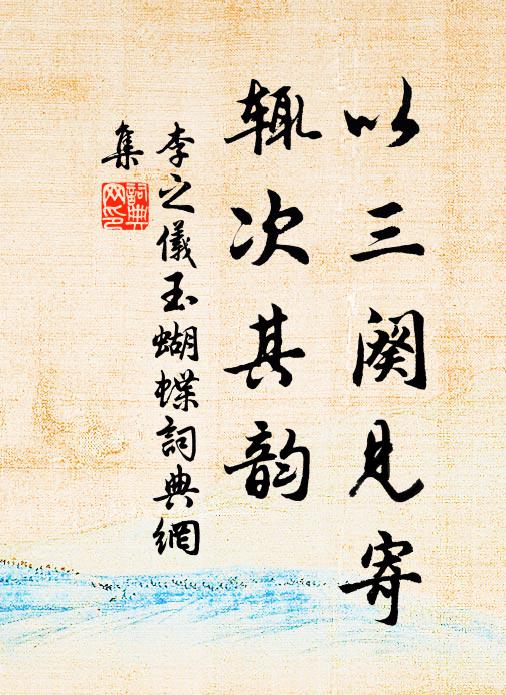 以三阕见寄
辄次其韵
李之儀玉蝴蝶詞典網
集
詞典
网印